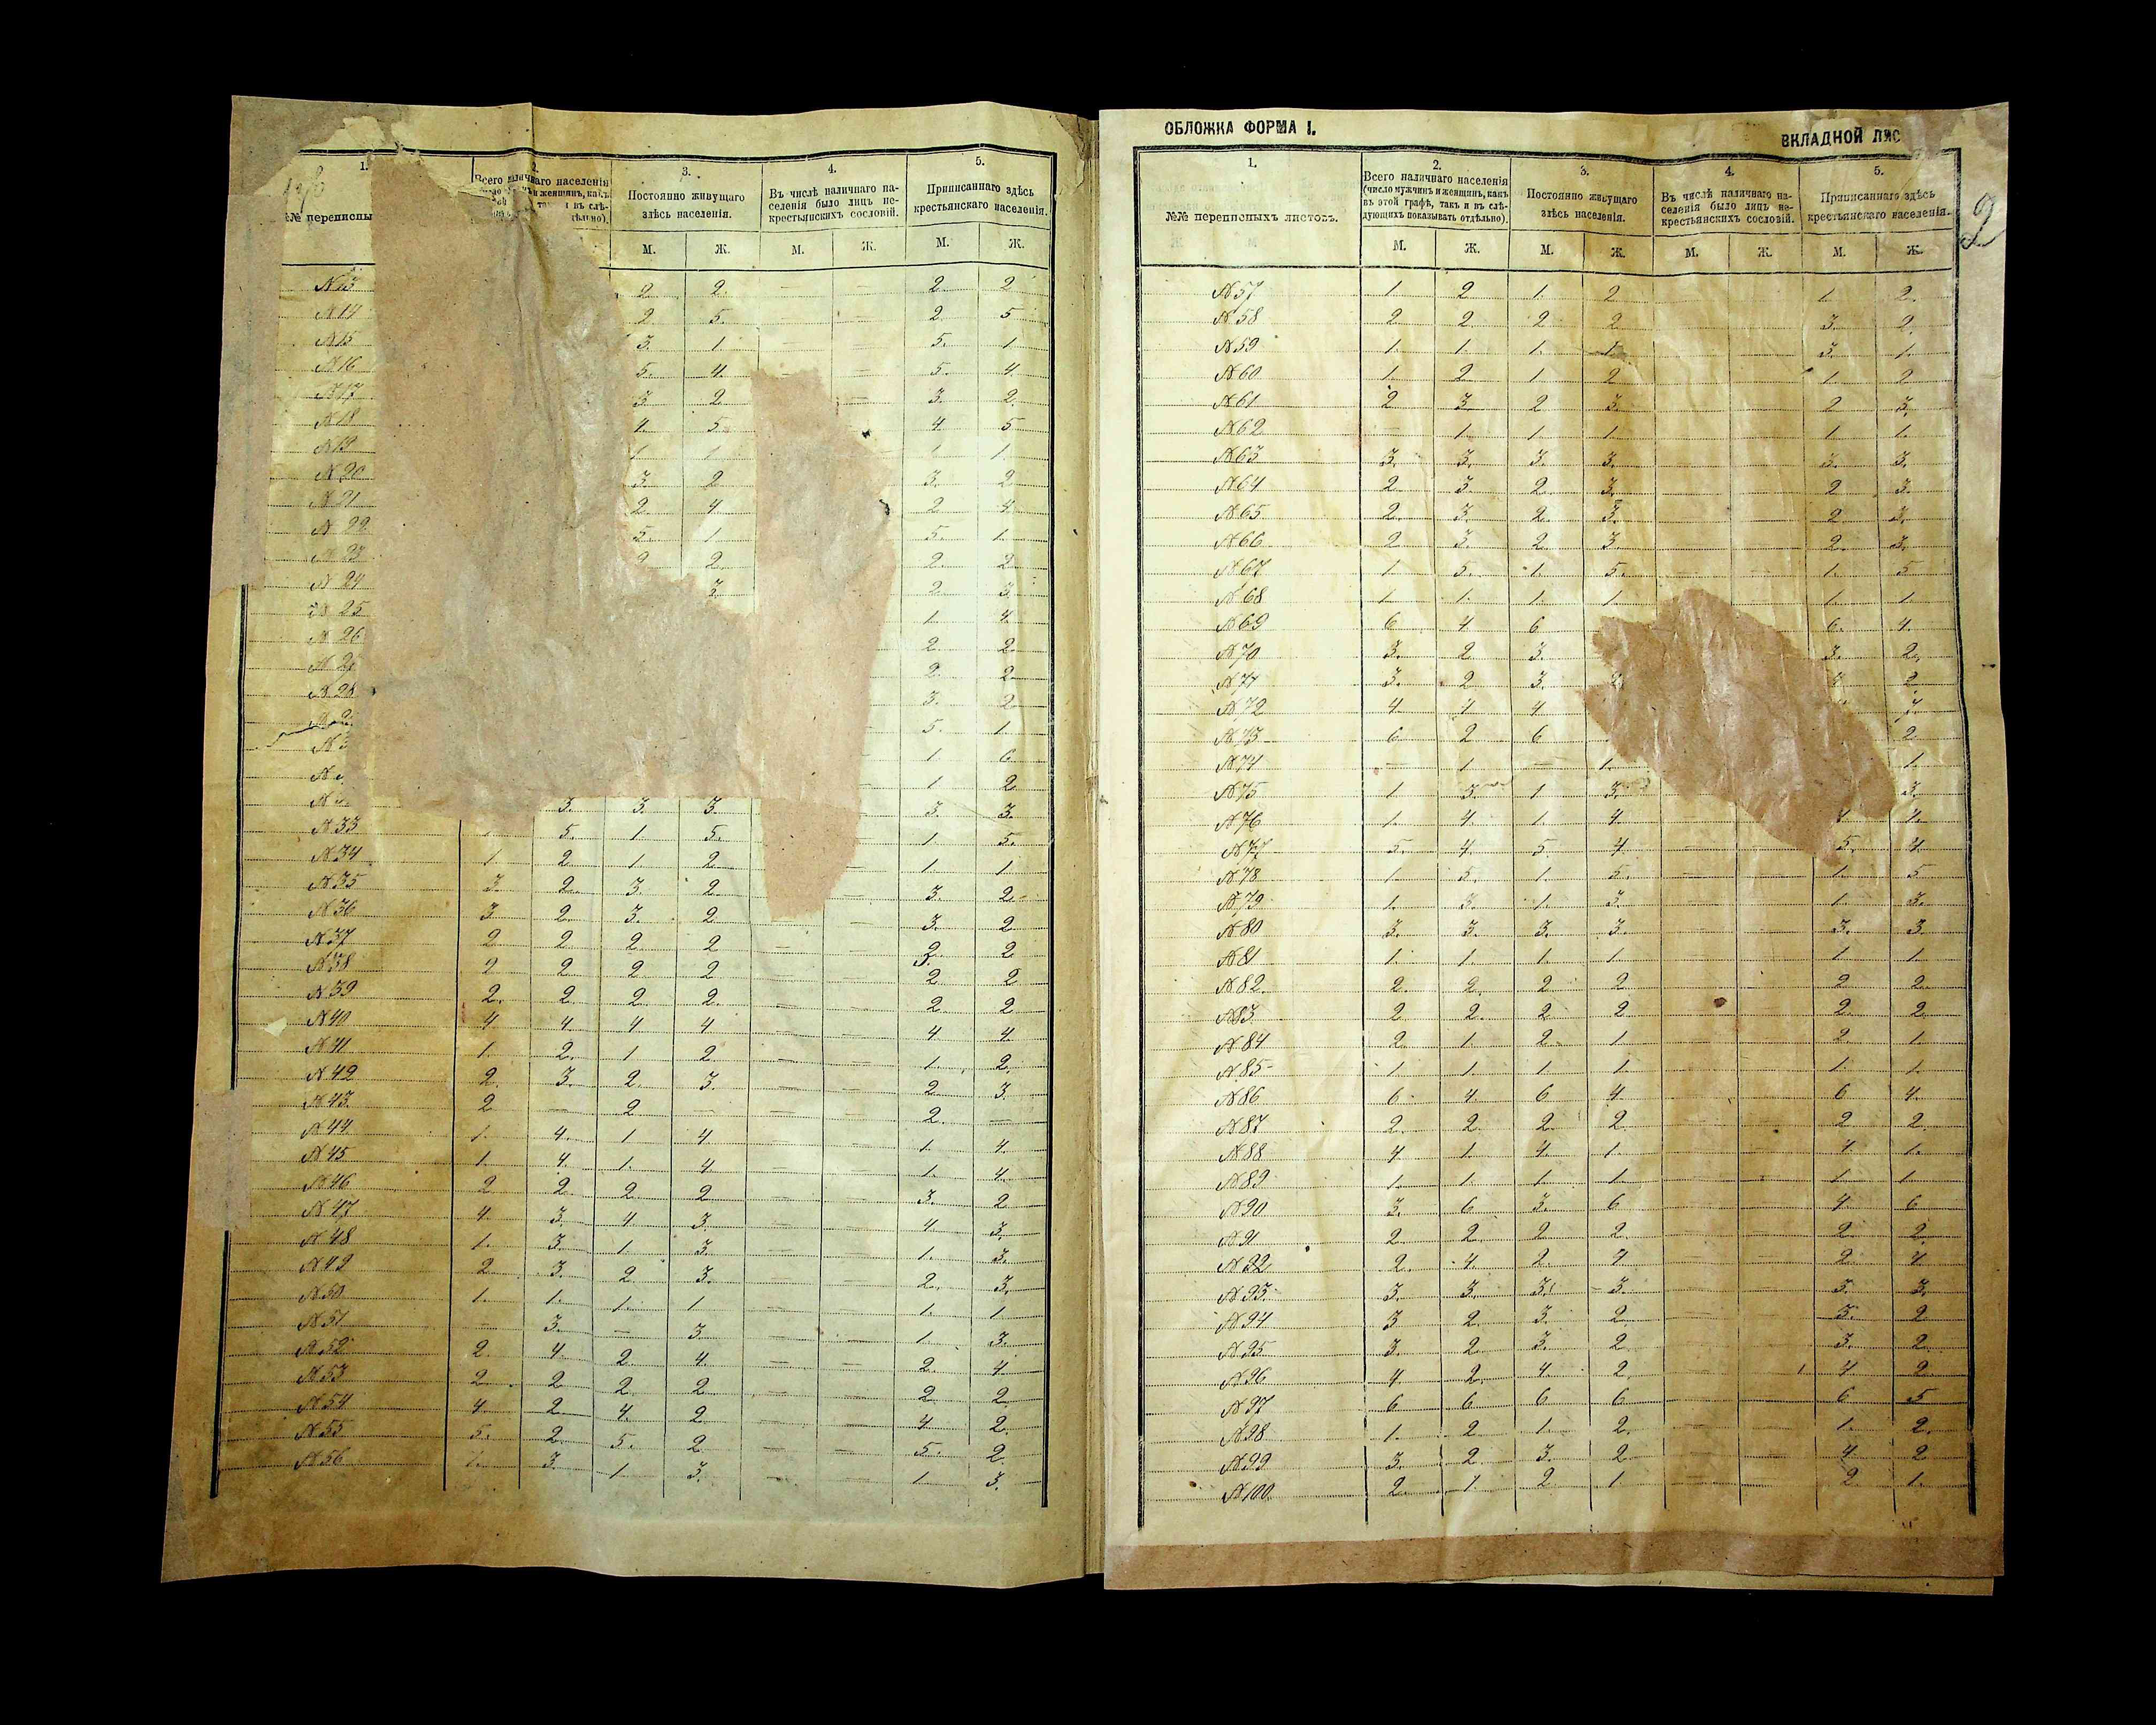 1.
2.
3.
4.
5.
№ переписны
Всего наличнаго населенія
и женщинъ, какъ
и въ слѣ-
Постоянно живущаго
здѣсь населенія.
Въ числѣ наличнаго на-
селенія было лицъ не-
крестьянскихъ сословій.
Приписаннаго здѣсь
крестьянскаго населенія.
М. Ж. М. Ж. М. Ж.
№ 13 2 2. — 2. 2
№ 14 2 5. — 2. 5
№ 15 3. 1 5. 1
№ 16 5. 4. — 5. 4
№ 17 3. 2. — 3. 2.
№ 18 4. 5. — 4 5
№ 19 1 1 1 1.
№ 20 3. 2 3. 2
№ 21 2. 4. 2 4
№ 22 5 1. 5. 1.
№ 23 2 2. 2. 2
№ 24 3. 2. 3.
№ 25 1. 4
№ 26 2. 2.
№ 2 2. 2.
№ 28 3. 2
№ 2 5. 1
№ 3 1. 6
№ 1 2
№ 3. 3. 3. 3. 3.
№ 33 1. 5. 1. 5. 1 5.
№ 34 1. 2. 1. 2. — 1. 1
№ 35 3. 2. 3. 2. — 3. 2
№ 36 3 2. 3. 2 — 3. 2
№ 37 2 2. 2. 2 — — 2. 2
№ 38 2 2 2 2 — — 2. 2
№ 39 2. 2 2. 2. — — 2 2
№ 40 4 4 4 4 — — 4 4.
№ 41 1. 2. 1 2 — — 1. 2.
№ 42 2. 3. 2. 3. — — 2. 3.
№ 43 2 — 2. — — — 2. —
№ 44 1. 4. 1 4 — — 1. 4.
№ 45 1. 4. 1. 4 — — 1. 4.
№ 46 2 2. 2 2 — — 3. 2
№ 47 4 3. 4 3 — — 4. 3.
№ 48 1. 3. 1. 3. — — 1. 3.
№ 49 2 3. 2 3. — — 2. 3.
№ 50 1. 1. 1. 1 — — 1. 1
№ 51 — 3. — 3 — — 1. 3.
№ 52 2. 4. 2. 4. — — 2. 4
№ 53 2 2 2. 2. — — 2 2.
№ 54 4 2 4. 2 — — 4 2.
№ 55 5. 2. 5. 2 — — 5. 2.
№ 56 1. 3. 1 3. — — 1 3.
ОБЛОЖКА ФОРМА I.
ВКЛАДНОЙ ЛИС
2
1.
2.
3.
4.
5.
№№ переписныхъ листовъ.
Всего наличнаго населенія
(число мужчинъ и женщинъ, какъ
въ этой графѣ, такъ и въ слѣ-
дующихъ показывать отдѣльно).
Постоянно живущаго
здѣсь населенія.
Въ числѣ наличнаго на-
селенія было лицъ не-
крестьянскихъ сословій.
Приписаннаго здѣсь
крестьянскаго населенія.
М. Ж. М. Ж. М. Ж. М. Ж.
№ 57 1. 2 1. 2 1. 2.
№ 58 2 2. 2 2 3. 2.
№ 59 1. 1. 1. 1. 3. 1.
№ 60 1. 2 1 2 1. 2
№ 61 2 3 2 3. 2 3.
№ 62 — 1. 1. 1. 1 1.
№ 63 3. 3. 3. 3. 3. 3.
№ 64 2. 3. 2. 3. 2 3.
№ 65 2. 3. 2. 3. 2 3.
№ 66 2 3. 2. 3. 2. 3.
№ 67 1 5. 1. 5. 1. 5
№ 68 1. 1. 1. 1. 1. 1.
№ 69 6 4 6 6. 4.
№ 70 3. 2 3. 3. 2.
№ 71 3. 2 3. 2 2.
№ 72 4 4 4
№ 73 6 2 6 2
№ 74 — 1. — 1. 1.
№ 75 1. 3. 1 3. 3.
№ 76 1. 4. 1 4 4.
№ 77 5. 4. 5. 4 5. 4.
№ 78 1 5. 1. 5. — 1. 5
№ 79 1. 3. 1. 3. 1. 3.
№ 80 3. 3. 3. 3. 3. 3.
№ 81 1. 1. 1. 1 1 1.
№ 82. 2. 2. 2 2 2 2.
№ 83 2 2. 2 2 2. 2
№ 84 2. 1. 2. 1. 2. 1.
№ 85 1. 1. 1. 1. 1. 1.
№ 86 6. 4 6 4. 6 4.
№ 87 2. 2. 2. 2. 2 2.
№ 88 4 1 4. 1. 4. 1.
№ 89 1. 1. 1. 1. 1 1.
№ 90 3. 6 3. 6 4. 6
№ 91 2. 2 2 2. 2. 2.
№ 92 2. 4. 2. 4 2. 4.
№ 93 3. 3. 3. 3. 3. 3.
№ 94 3 2. 3. 2. 3. 2
№ 95 3. 2. 3. 2 3. 2.
№ 96 4 2. 4. 2. 4 2.
№ 97 6 6 6 6 6 5
№ 98 1. 2 1. 2. 1. 2.
№ 99 3. 2. 3. 2 4 2
№ 100 2. 1. 2 1. 2. 1.